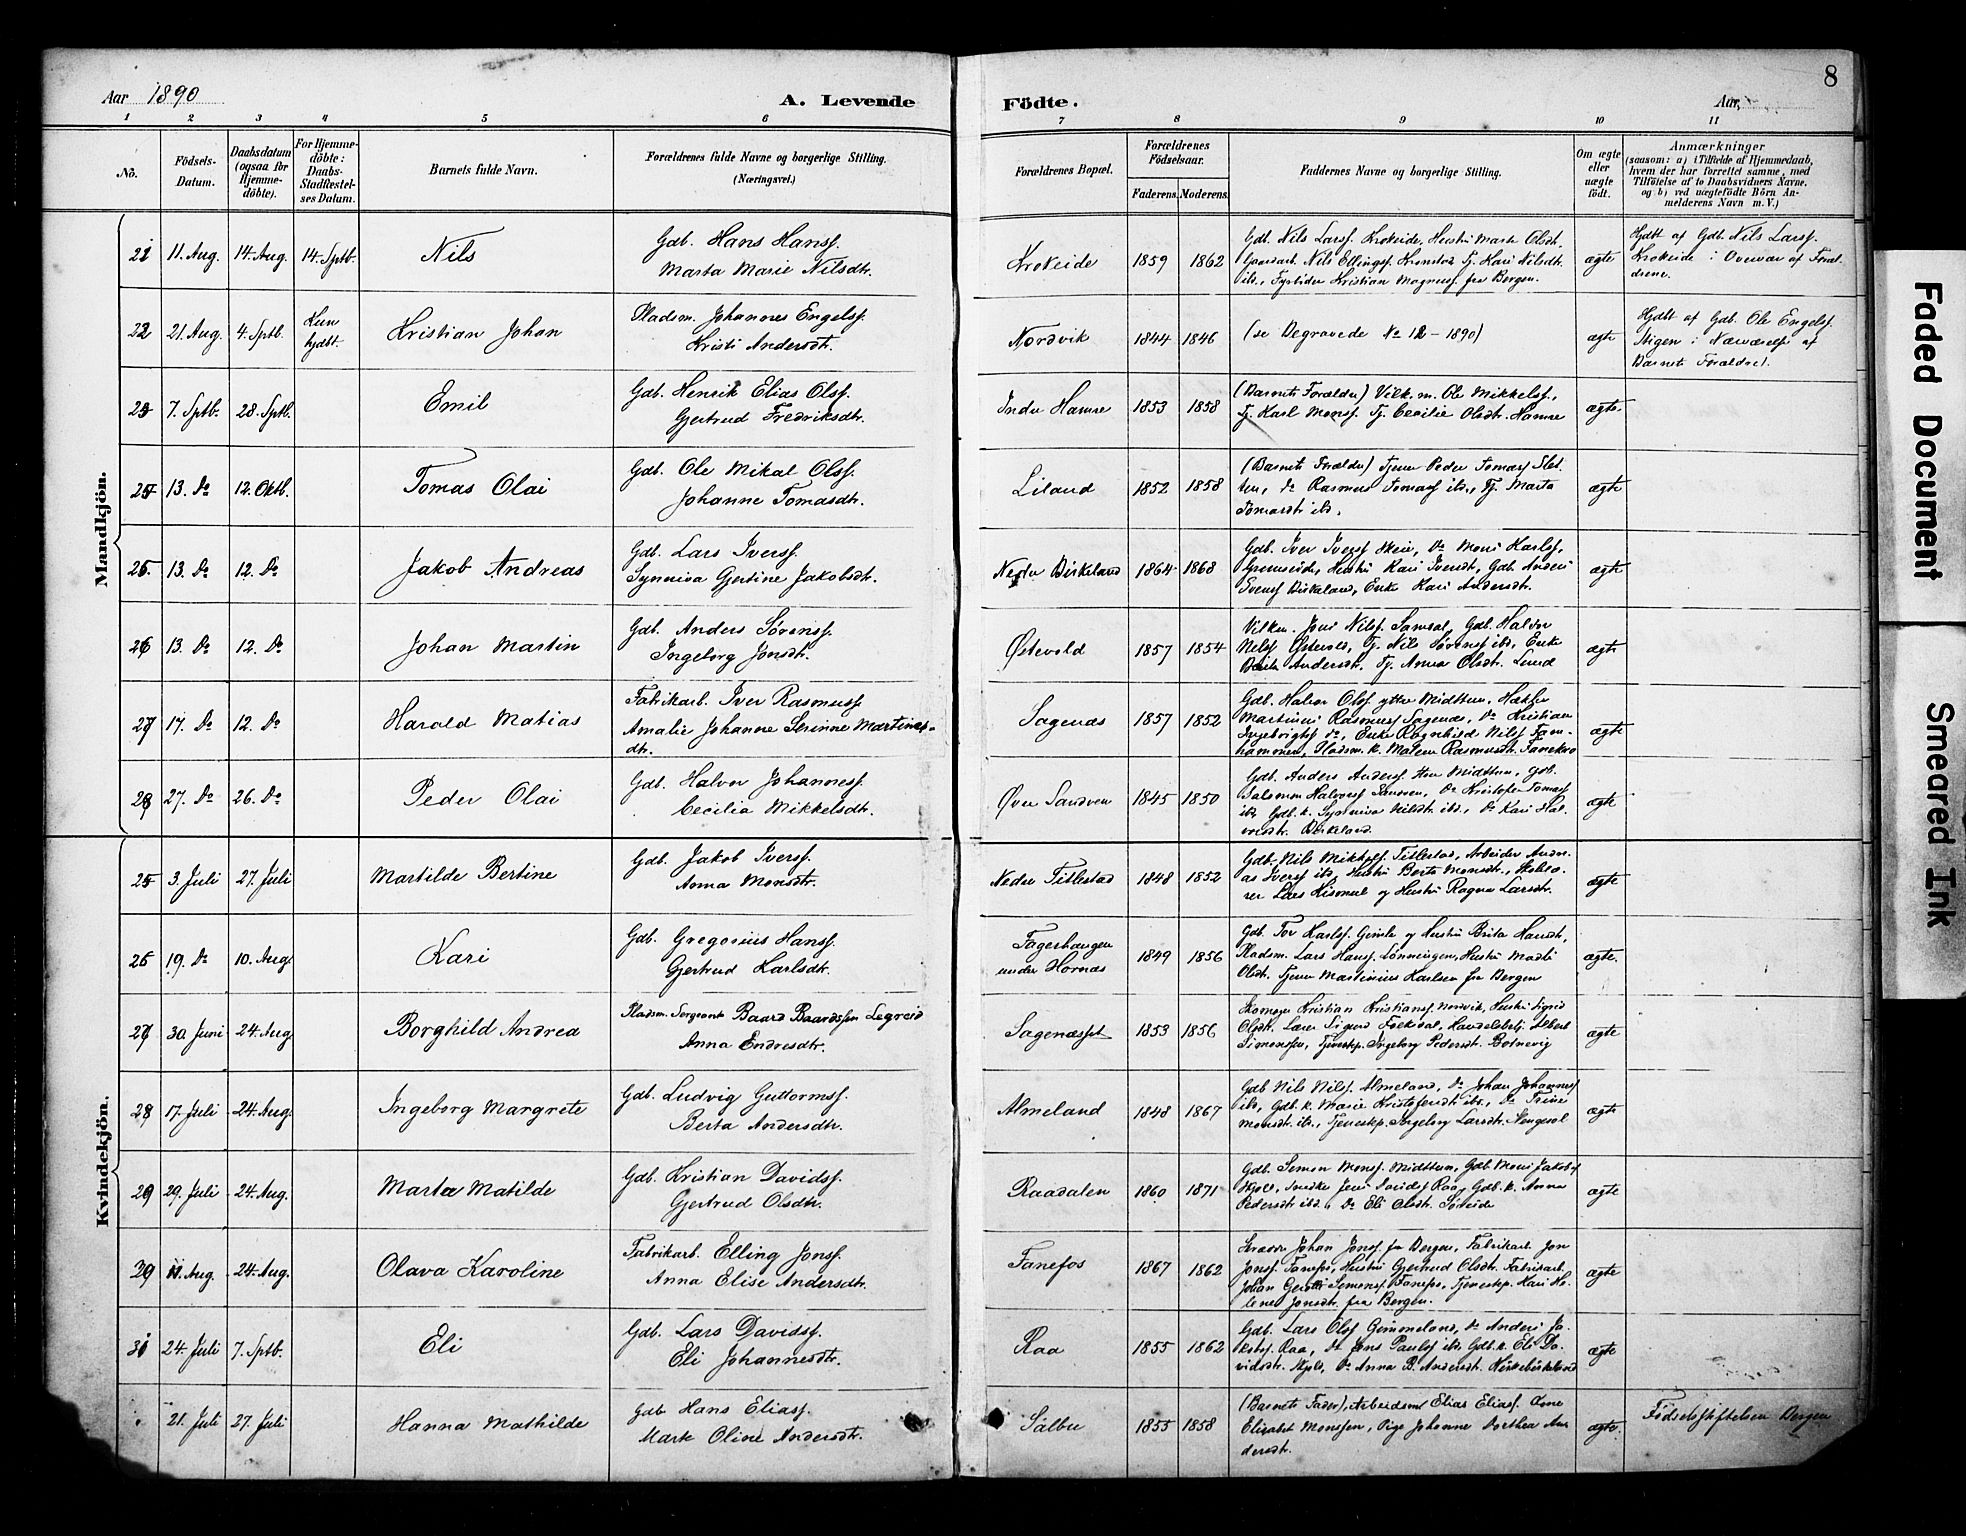 8
Aar 1890
A. Levende
Födte.
Aar,
1 2 3 4 5 6 7 8 9 10 11
No.
Födsels-
Datum.
Daabsdatum
(ogsaa for
Hjemme-
döbte).
For Hjemme-
döbte:
Daabs-
Stadfæstel-
ses Datum.
Barnets fulde Navn.
Forældrenes fulde Navne og borgerlige Stilling.
(Næringsvei.)
Forældrenes Bopæl.
Forældrenes
Födselsaar.
Faderens. Moderens.
Faddernes Navne og borgerlige Stilling.
Om ægte
eller
uægte
födt.
Anmærkninger
(saasom: a) i Tilfælde af Hjemmedaab,
hvem der har forrettet samme, med
Tilföielse af to Daabsvidners Navne,
og b) ved uægtefödte Börn An-
melderens Navn m. V.)
Mandkjön.
21 11. Aug. 14. Aug. 14. Sptb. Nils
Gdb. Hans Hanss.
Marta Marie Nilsdtr.
Krokeide 1859 1862
Gdb. Nils Larss. Krokeide, Hustru Marte Olsdt.
Gaardarb. Nils Ellingss. Kronstad Tj. Kari Nilsdtr
ibd., Kristian Magnuss. fra Bergen.
ægte
Hjdbt af Gdb. Nils Larss.
Krokeide i Overvær af Foræl-
drene.
22 21. Aug. 4. Sptb. Kun
hjdbt. Kristian Johan
Pladsm. Johannes Engelss.
Kristi Andersdtr.
Nordvik 1844 1846 (se Begravede No 12 - 1890) ægte
Hjdbt af Gdb. Ole Engelss.
Stigen i Nærværelse af
Barnets Forældre.
23 7. Sptb. 28. Sptb. Emil
Gdb. Henrik Elias Olss.
Gjertrud Fredriksdtr.
Indre Hamre 1853 1858
(Barnets Forældre) Ole Mikkelss.,
Tj. Karl Monss. Tj. Cecilie Olsdtr. Hamre
ægte
24 13. Do 12. Oktb. Tomas Olai
Gdb. Ole Mikal Olss.
Johanne Tomasdtr.
Liland 1852 1858
(Barnets Forældre) Tjener Peder Tomass Slet-
ten, Do Rasmus Tomass ibd., Tj. Marta
Tomasdtr ibd.
ægte
25. 13. Do 12. Do Jakob Andreas
Gdb. Lars Iverss.
Synneva Gjertine Jakobsdtr.
Nedre Birkeland 1864 1868
Gdb. Iver Iverss Skeie, Do Mons Karlss.
Grimseide, Hustru Kari Iversdt, Gdb. Anders
Birkeland, Enke Kari Andersdtr.
ægte
26 13. Do 12. Do Johan Martin
Gdb. Anders Sørenss.
Ingeborg Jonsdtr.
Østevold 1857 1854
Nilss. Samdal, Gdb. Haldor
Nilss Østevold, Tj. Nils Sørenss ibd, Enke
Brita Andersdt. Tj. Anna Olsdtr. Lund
ægte
27 17. Do 12. Do Harald Matias
Fabrikarb. Iver Rasmuss
Amalie Johanne Serinne Martines-
dtr.
Sagenæs 1857 1852
Gdb. Halvor Olss ytre Midttun,
Martinus Rasmuss Sagenæs, Do Kristian
Do, Enke Ragnhild Nilss Fam-
hammeren, Pladsm. k. Malene Rasmusdtr.
ægte
28 27. Do 26. Do Peder Olai
Gdb. Halvor Johanness.
Cecilia Mikkelsdtr.
Øvre Sandven 1845 1850
Gdb. Anders Anderss. Midttun, Gdb.
Salomon Halvorss Sandven, Do Kristofer Tomass
ibd, Gdb. k. Synneva Nilsdt. ibd., Do Kari Hal-
vorsdtr. Birkeland.
ægte
Kvindekjön.
25 3. Juli 27. Juli Martilde Bertine
Gdb. Jakob Iverss.
Anna Monsdtr.
Nedre Titlestad 1848 1852
Gdb. Nils Mikkelss Titlestad, Arbeider Andre-
as Iverss ibd, Hustru Berta Monsdtr.,
Lars og Hustru Ragna Larsdtr.
ægte
26 19. Do 10. Aug Kari
Gdb. Gregorius Hanss.
Gjertrud Karlsdtr.
Fagerhaugen
under Hornæs 1849 1856
Gdb. Tor Karlss. Gimle og Hustru Brita Hansdt,
Pladsm. Lars Hanss. Lønningen, Hustru Madli
Olsdt. Tjener Martinius Karlsen fra Bergen
ægte.
27 30. Juni 24. Aug Borghild Andrea
Pladsm. Sergeant Baard Baardssen Legreid
Anna Endresdtr.
Sagenæsset 1853 1856
Skomager Kristian Kristianss. Nordvik, Hustru Sigrid
Olsdt. Lærer Sigurd Folkedal, Handelsbetj. Albert
Simonssen, Tjenestep. Ingeborg Pedersdt. Botnevig
ægte
28 17. Juli 24. Aug. Ingeborg Margrete
Gdb. Ludvig Guttormss.
Berta Andersdtr.
Almeland 1848 1867
Gdb Nils Nilss. Almeland, Do Johan Johanness
ibd, Gdb. k. Marie Kristofersdt ibd., Do Trine
Monsdtr. ibd., Tjenestep. Ingeborg Larsdtr.
ægte
29 29. Juli 24. Aug. Marta Matilde
Gdb. Kristian Davidss.
Gjertrud Olsdtr.
Raadalen 1860 1871
Gdb. Simon Monss. Midttun, Gdb Mons Jakobss
Skjold, Jens Davidss Raa, Gdb. k. Anna
Pedersdtr ibd., Do Eli Olsdtr. Søreide
ægte
30 11. Aug. 24. Aug. Olava Karoline
Fabrikarb. Elling Jonss.
Anna Elise Andersdtr.
Fanefos 1867 1862
Johan Jonss. fra Bergen, Fabrikarb. Jon
Jonss. Fanefos, Hustru Gjertrud Olsdtr. Fabrikarb.
Johan Simonss. Fanefos, Tjenestep. Kari He-
lene Jonsdtr. fra Bergen.
ægte
31 24. Juli 7. Sptb. Eli
Gdb. Lars Davidss.
Eli Johannesdtr.
Raa 1855 1862
Gdb. Lars Olss Grimmeland, Do Anders Ja-
kobss. Raa, Do Jens Paulss ibd Gdb. k. Eli Da-
vidsdtr. Skjold, Do Anna B. Andersdt. Kirkebirkeland
ægte
21. Juli 27. Juli Hanna Mathilde
Gdb Hans Eliass.
Marte Oline Andersdtr.
Sälbu 1855 1858
(Barnets Fader), Arbeidsmd Elias Eliass.
Elisabet Monssen, Pige Johanne Dorthea An-
dersdt.
ægte.
Fødselsstiftelsen Bergen
Faded Document
Smeared Ink